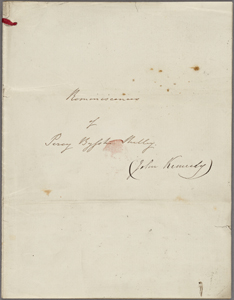 Reminiscences
of
Percy Bysshe Shelley
(John Kennedy)